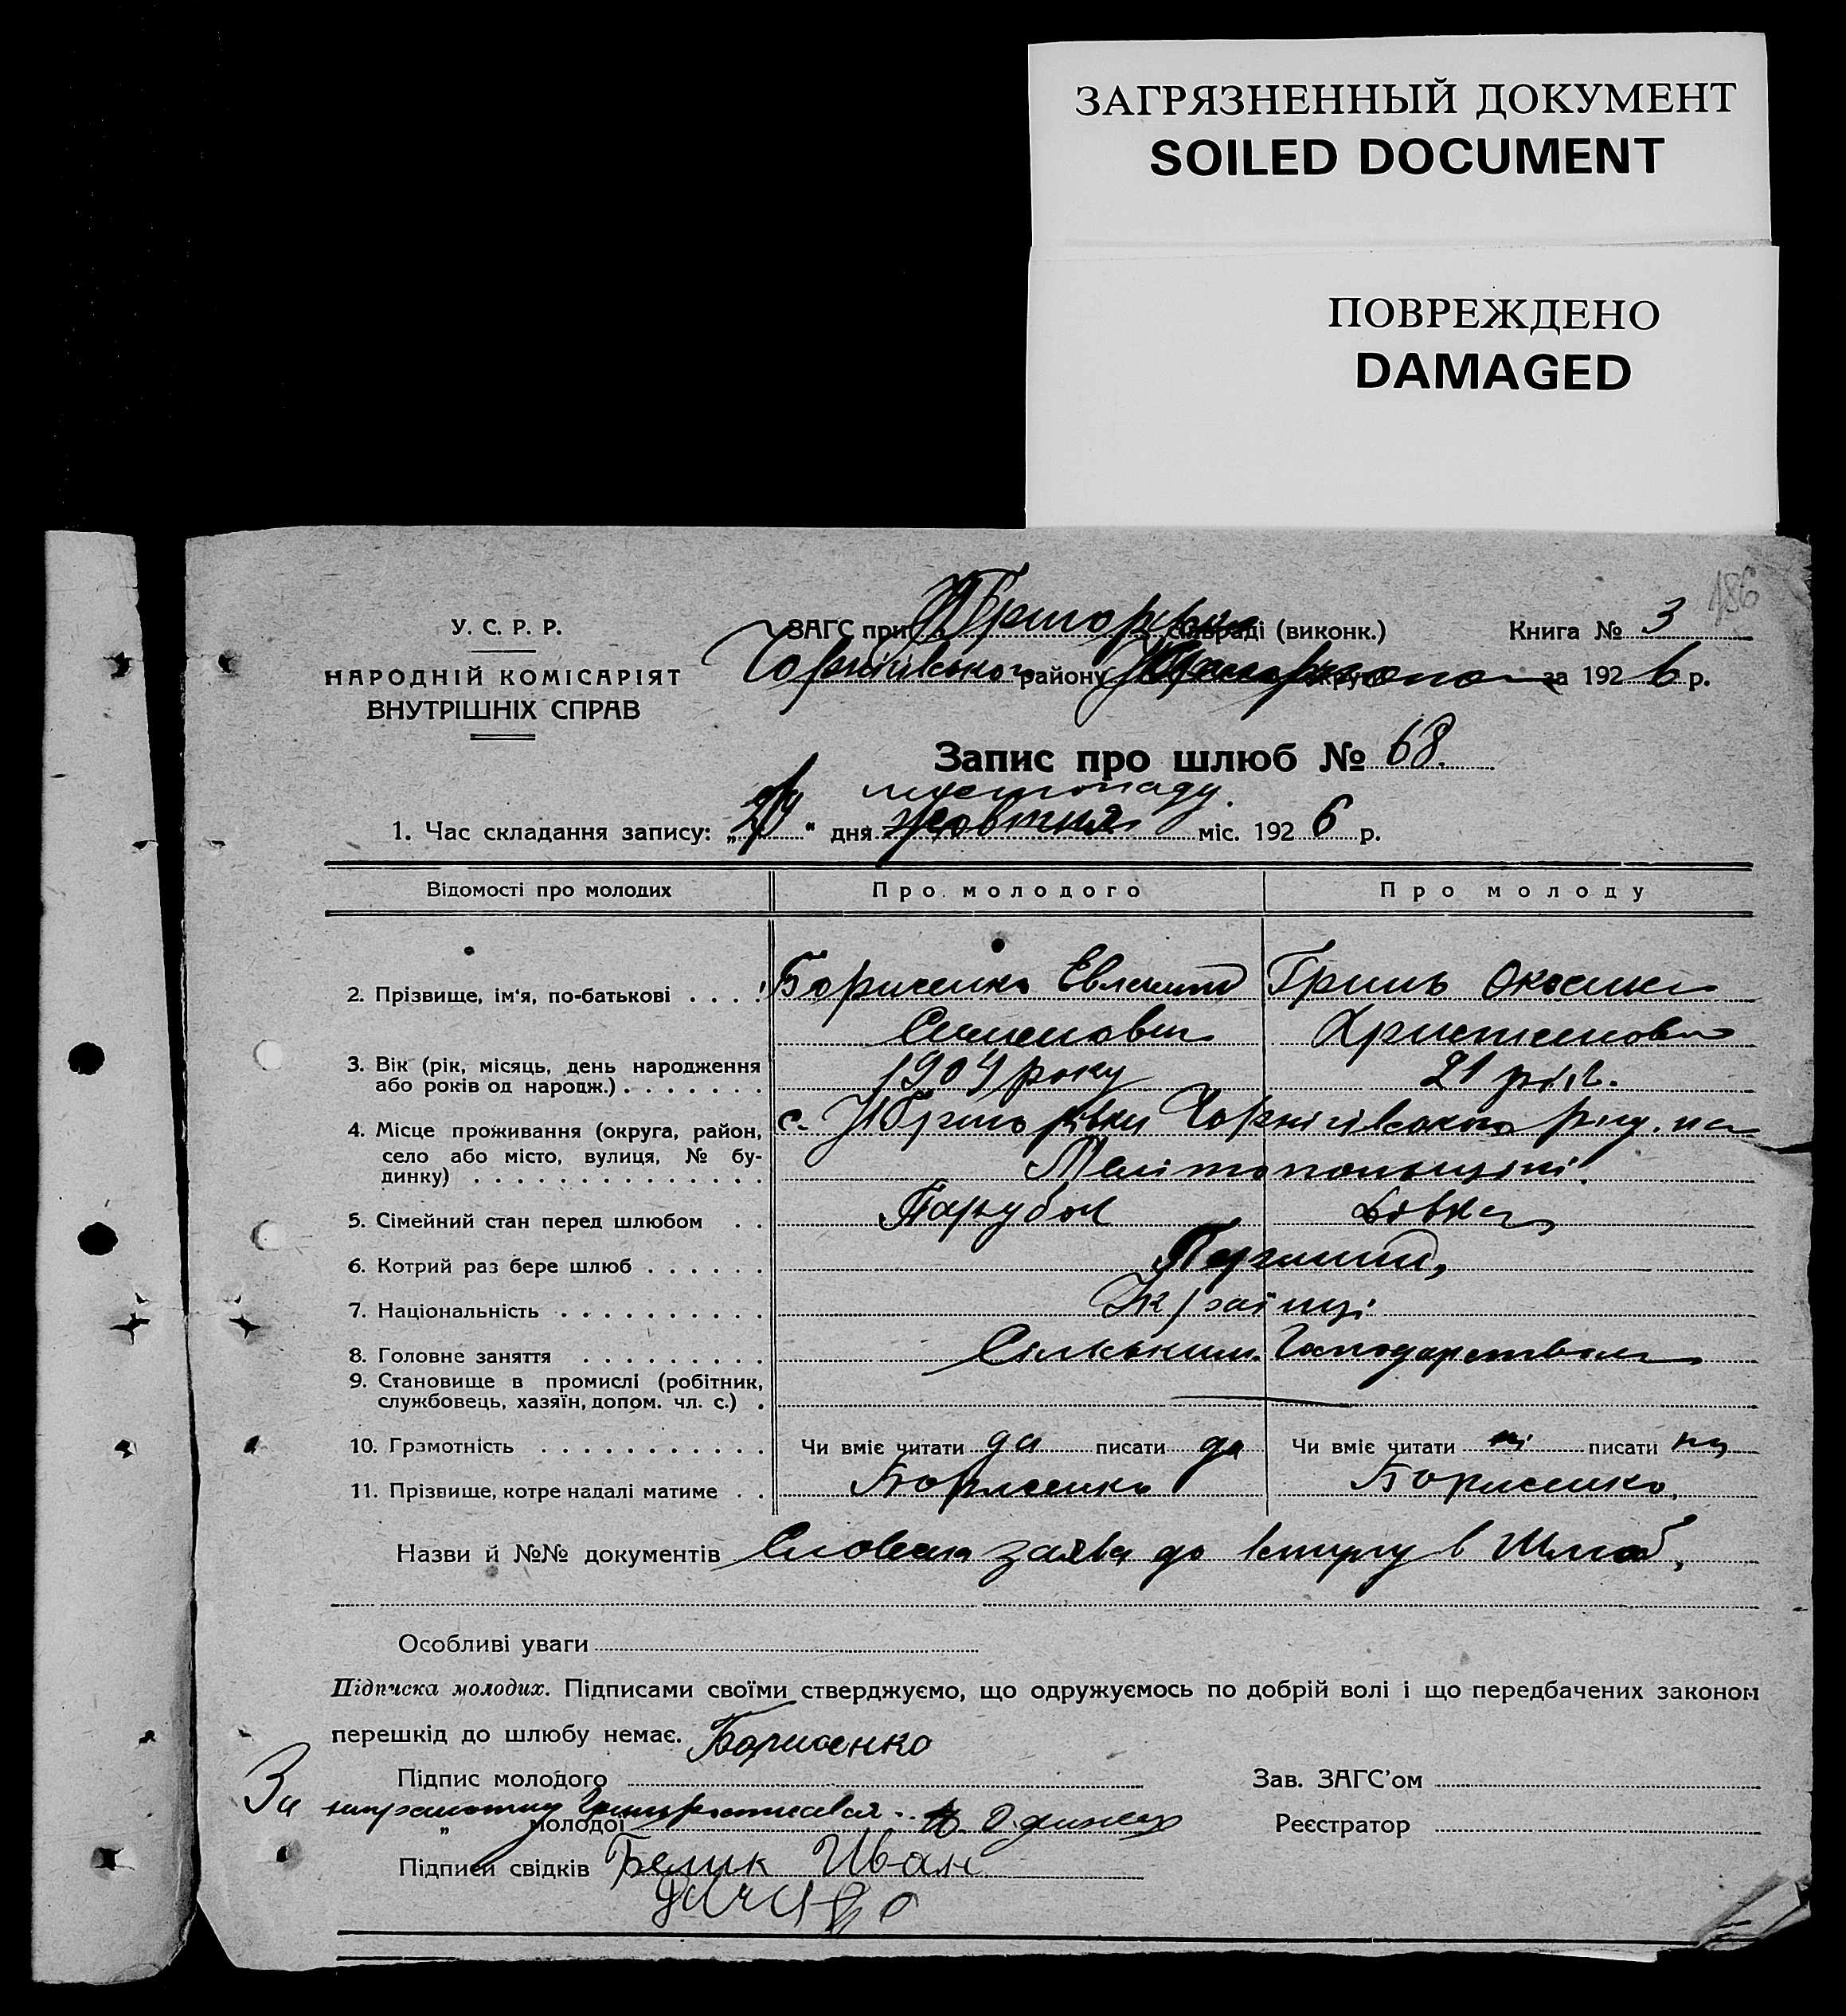 ЗАГРЯЗНЕННЫЙ ДОКУМЕНТ
SOILED DOCUMENT
ПОВРЕЖДЕНО
DAMAGED
186
У. С. Р. Р.
НАРОДНІЙ КОМІСАРІЯТ
ВНУТРІШНІХ СПРАВ
ЗАГС при (виконк.) Книга № 3
району за 192 6 р.
Запис про шлюб № 68.
листопаду
1. Час складання запису: „ " дня жовтня міс. 192 6 р.
Відомості про молодих Про молодого Про молоду
2. Прізвище, ім'я, по-батькові . . . . Борисенко Гринь Оксана
Семенович
3. Вік (рік, місяць, день народження
або років од народж.) . . . . . . . 1904 року 21 рік.
4. Місце проживання (округа, район,
село або місто, вулиця, № бу-
динку) . . . . . . . . . . . . . . с. Чернігівського на
Мелітопольщині.
5. Сімейний стан перед шлюбом . . Парубок Дівка
6. Котрий раз бере шлюб . . . . . . Перший,
7. Національність . . . . . . . . . . Українці
8. Головне заняття . . . . . . . . . Сільським Господарством
9. Становище в промислі (робітник,
службовець, хазяїн, допом. чл. с.) .
10. Грамотність . . . . . . . . . . . Чи вміє читати да писати да Чи вміє читати ні писати ні
11. Прізвище, котре надалі матиме . . Борисенко Борисенко,
Назви й №№ документів Словесна заява до вступу в Шлюб,
Особливі уваги
Підписка молодих. Підписами своїми стверджуємо, що одружуємось по добрій волі і що передбачених законом
перешкід до шлюбу немає. Борисенко
Підпис молодого Зав. ЗАГС'ом
За
„ молодої Реєстратор
Підписи свідків Белик Иван